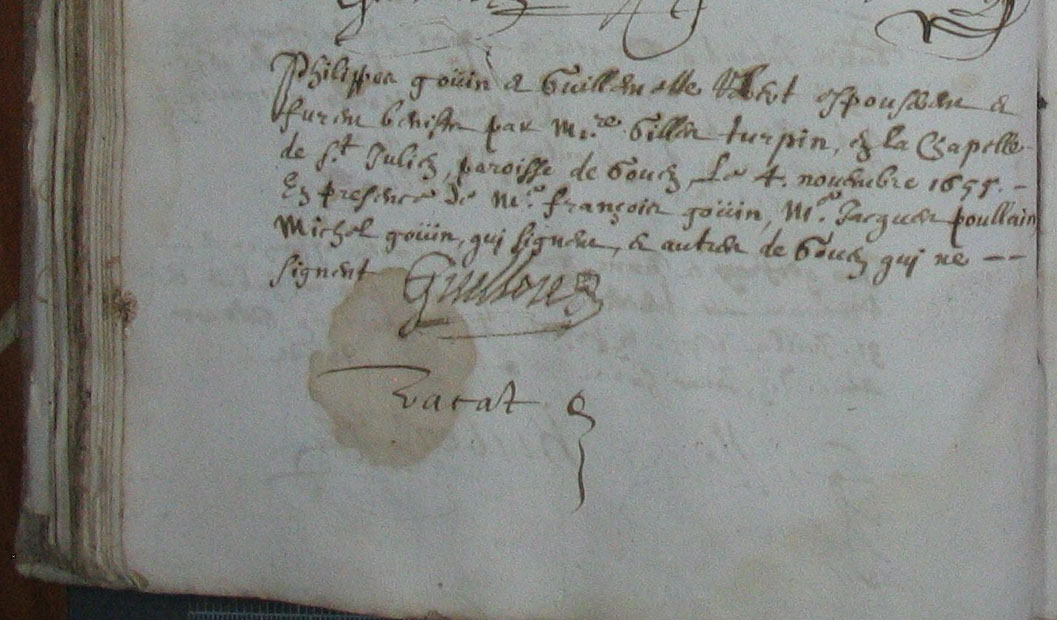 Philippes goüin & Guillemette espouserent &
furent benistz par M.re Gilles turpin, en la Chapelle
de s.t Julien, paroisse de Goven, Le 4. novembre 1655. -
En presence de M.e françois goüin, M.e Jacques poullain,
Michel goüin, qui signent, & autres de Goven qui ne --
signent
vacat